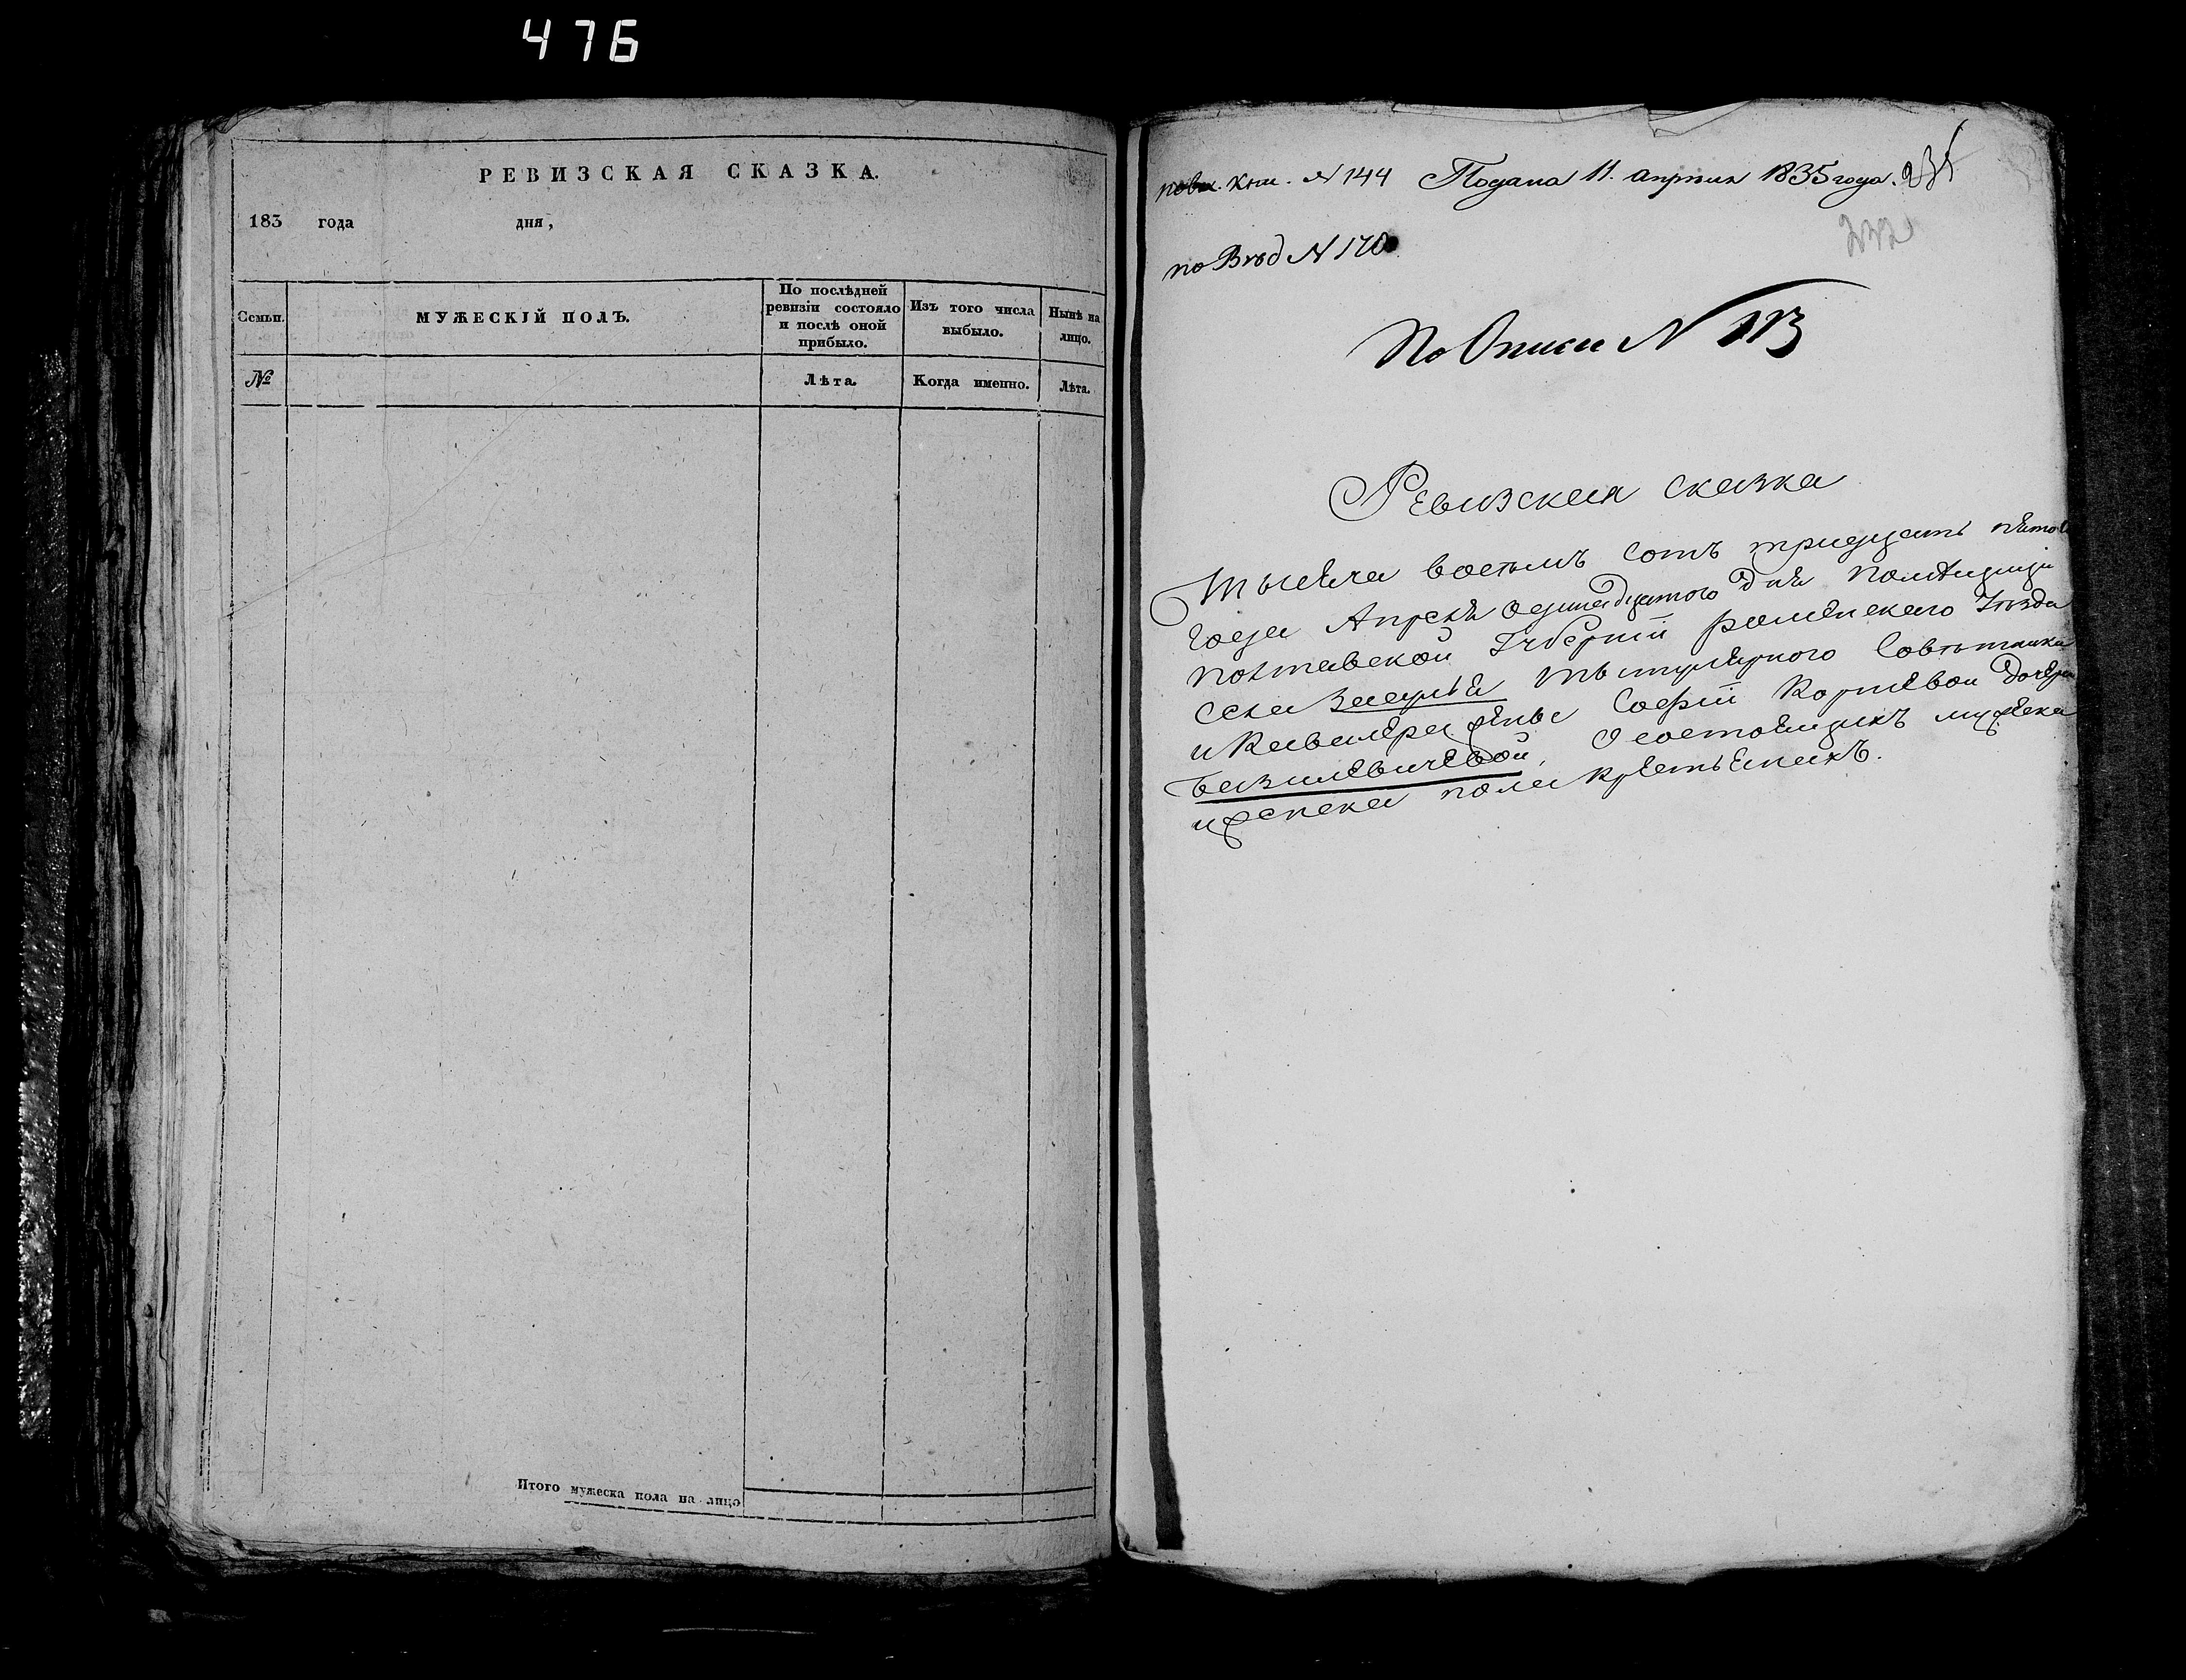 476
РЕВИЗСКАЯ СКАЗКА.
183 года дня,
Семьи. МУЖЕСКІЙ ПОЛЪ. По послѣдней ревизіи состояло и послѣ оной прибыло. Изъ того числа выбыло. Нынѣ на лицо.
№ Лѣта. Когда именно. Лѣта.
Итого мужеска пола на лицо
Кни. № 144 Подана 11. апрѣля 1835 года. 231
232
по Вѣд № 170
По Описи № 113
Ревизская сказка
Тысяча восемъ сотъ тридцать пятого
года Апреля одинадцятого дня
полтавской Губерніи роменского Уѣзда
села Засулья титулярного Совѣтника
и Кавалера жены Софіи Корнѣвой дочери
Базилевичевой, о состоящихъ мужеска
и женска пола крестьянахъ.